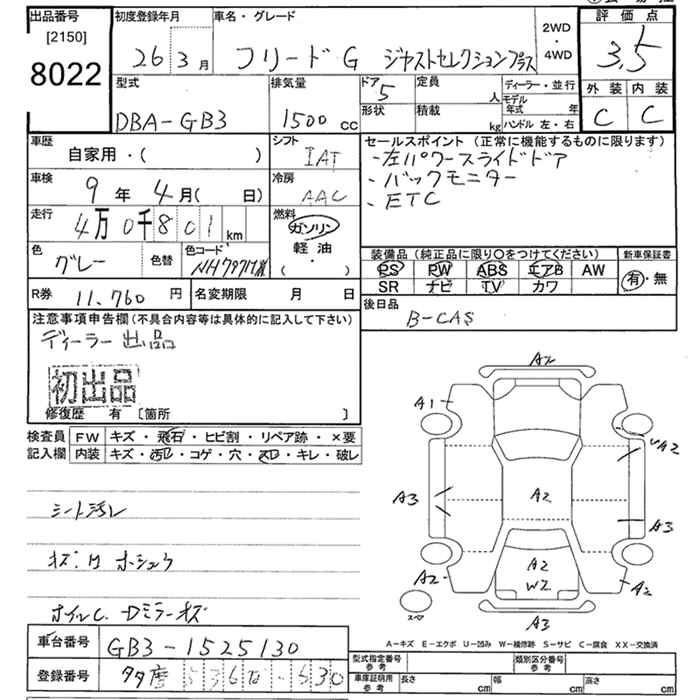 出品番号 初度登録年月 車名・グレード 2WD・4WD 評価点
[2150] 8022 26 3月 フリード G ジャストセレクションプラス 3.5
型式 排気量 ドア 定員 ディーラー・並行 外装 内装
DBA-GB3 1500 cc 5 人 モデル年式 年 C C
形状 積載 kg ハンドル 左・右
車歴 シフト セールスポイント(正常に機能するものに限ります)
自家用・( ) IAT ・左パワースライドドア
車検 冷房 ・バックモニター
9年 4月( 日) AAC ・ETC
走行 燃料
4万0千801km ガソリン
軽油
( ・ )
色 色替 色コード 装備品(純正品に限り○をつけてください) 新車保証書
グレー PS PW ABS エアB AW 有・無
SR ナビ TV カワ
R券 11,760円 名変期限 月 日 後日品
B-CAS
注意事項申告欄(不具合内容等は具体的に記入して下さい)
ディーラー出品
初出品
修復歴 有 〔箇所 〕
検査員 FW キズ・飛石・ヒビ割・リペア跡・×要
記入欄 内装 キズ・汚レ・コゲ・穴・スレ・キレ・破レ
シート汚レ
ホイルC. Dミラーキズ
A2
A1
A2
A3
A2
A3
A2
A2
W2
A2
A3
スペア
A-キズ E-エクボ U-凹み W-補修跡 S-サビ C-腐食 XX-交換済
車台番号 GB3-1525130
型式指定番号 参考 類別区分番号 参考
登録番号 多摩
車庫証明用 参考 長さ cm 幅 cm 高さ cm